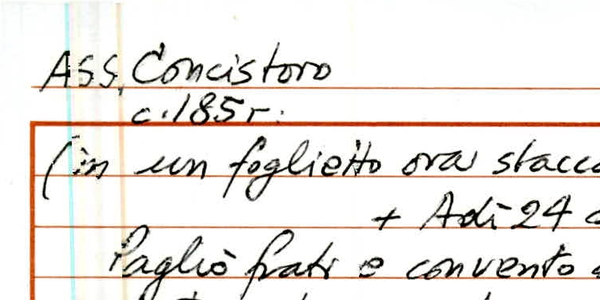 ASS, Concistoro
c. 185r.
(in un foglietto ora stacca
+ Adì 24
Pagliò frati e convento